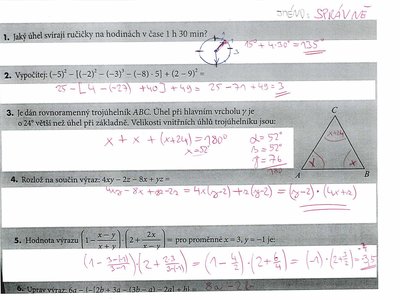 JMÉNO: SPRÁVNĚ
1. Jaký úhel svírají ručičky na hodinách v čase 1 h 30 min?
15° + 4·30° = 135°
2. Vypočítej: (−5)² − [(−2)² − (−3)³ − (−8) · 5] + (2 − 9)² =
25 - [4 - (-27) + 40] + 49 = 25 - 71 + 49 = 3
3. Je dán rovnoramenný trojúhelník ABC. Úhel při hlavním vrcholu γ je
o 24° větší než úhel při základně. Velikosti vnitřních úhlů trojúhelníku jsou:
x + x + (x+24) = 180°
x = 52°
α = 52°
β = 52°
γ = 76
180
C
x+24
x
x
A
B
4. Rozlož na součin výraz: 4xy − 2z − 8x + yz =
4xy - 8x + yz - 2z = 4x(y-2) + z(y-2) = (y-2)·(4x+z)
5. Hodnota výrazu (1 − x − y / x + y) · (2 + 2x / x − y) = pro proměnné x = 3, y = −1 je:
(1 - 3-(-1) / 3+(-1)) · (2 + 2·3 / 3-(-1)) = (1 - 4/2) · (2 + 6/4) = (-1) · (2 + 3/2) = -3,5
6. Uprav výraz: